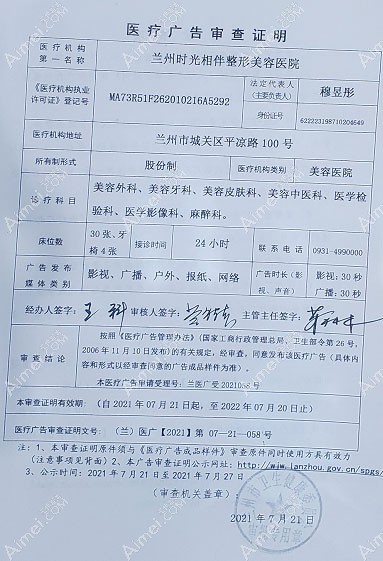 医疗广告审查证明
医疗机构第一名称 兰州时光相伴整形美容医院
《医疗机构执业许可证》登记号 MA73R51F262010216A5292 法定代表人(主要负责人) 穆昱彤
身份证号 622223198710204649
医疗机构地址 兰州市城关区平凉路100号
所有制形式 股份制 医疗机构类别 美容医院
诊疗科目 美容外科、美容牙科、美容皮肤科、美容中医科、医学检验科、医学影像科、麻醉科。
床位数 30张、牙椅4张 接诊时间 24小时 联系电话 0931-4990000
广告发布媒体类别 影视、广播、户外、报纸、网络 广告时长(影视、声音) 影视:30秒 广播:30秒
经办人签字: 审核人签字: 主管主任签字:
审查结论 按照《医疗广告管理办法》(国家工商行政管理总局、卫生部令第26号,
2006年11月10日发布)的有关规定,经审查,同意发布该医疗广告(具体内
容和形式以经审查同意的广告成品样件为准)。
本医疗广告申请受理号:兰医广受2021058号
本审查证明有效期: (自2021年07月21日起,至2022年07月20日止)
医疗广告审查证明文号: (兰)医广【2021】第07-21-058号
注:1、本审查证明原件须与《医疗广告成品样件》审查原件同时使用方具有效力
(注意事项见背面)2、本广告审查证明公示网址:http://www.lanzhou.gov.cn/spgs/
3、公示时间:2021年7月21日至2021年7月27日
(审查机关盖章)
2021年7月21日